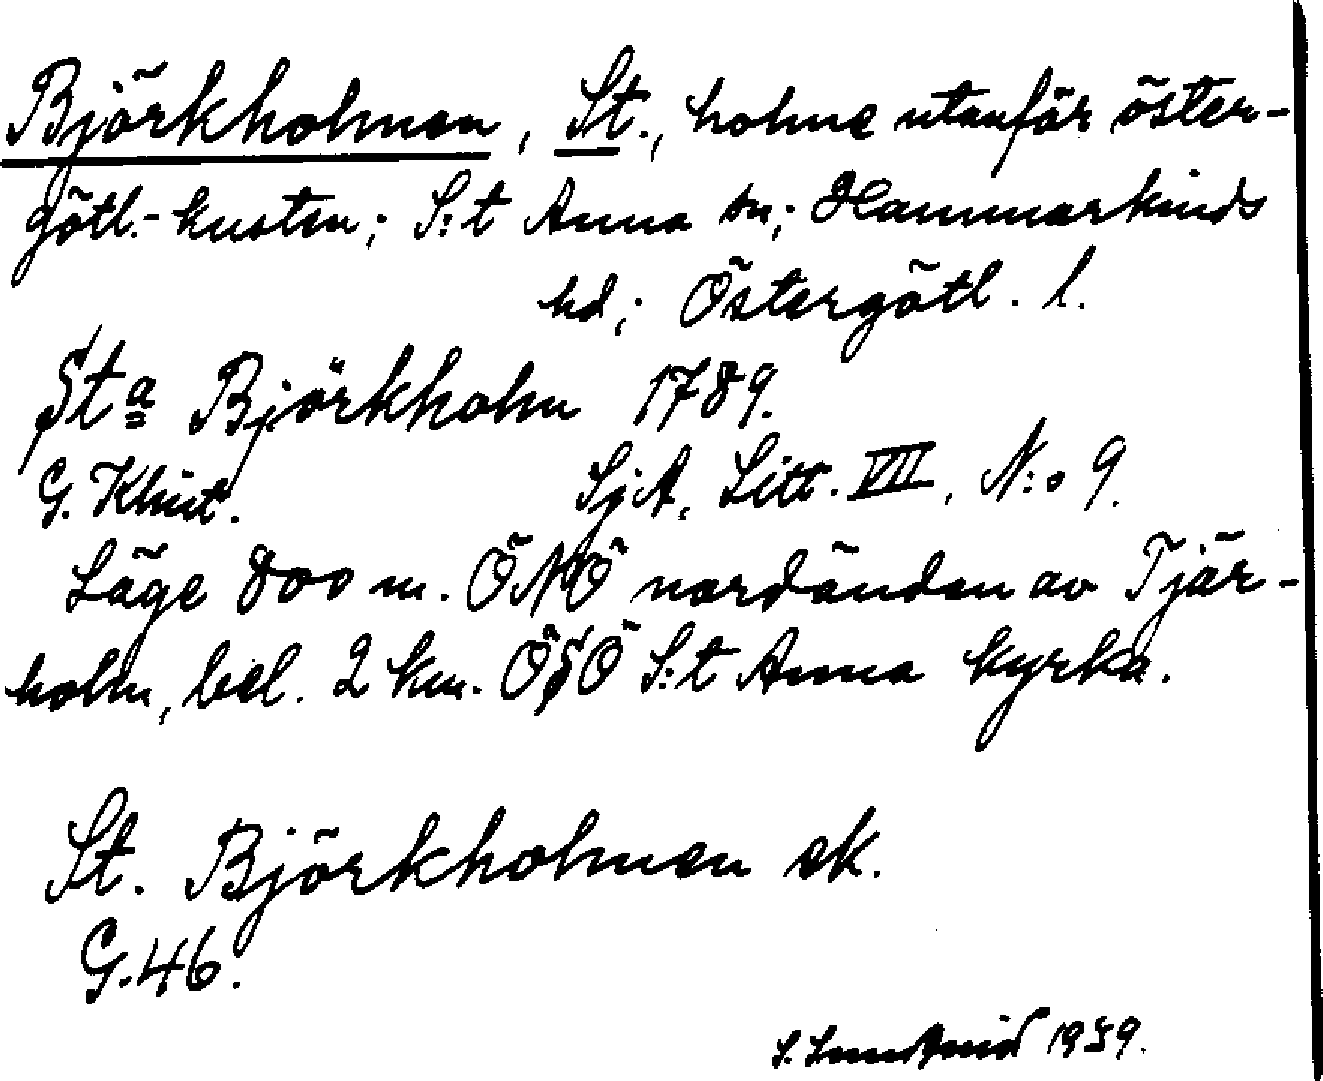 Björkholmen, St., holme utanför öster-
götl.-kusten; S:t Anna sn; Hammarkinds
hd; Östergötl. l.
Sta Björkholm 1789.
G. Klint. SjA, Litt. VII, N:o 9.
Läge 800 m. ÖNÖ nordänden av Tjär-
holm, bel. 2 km. ÖSÖ S:t Anna kyrka.
St. Björkholmen ek.
G.46.
S. 1939.